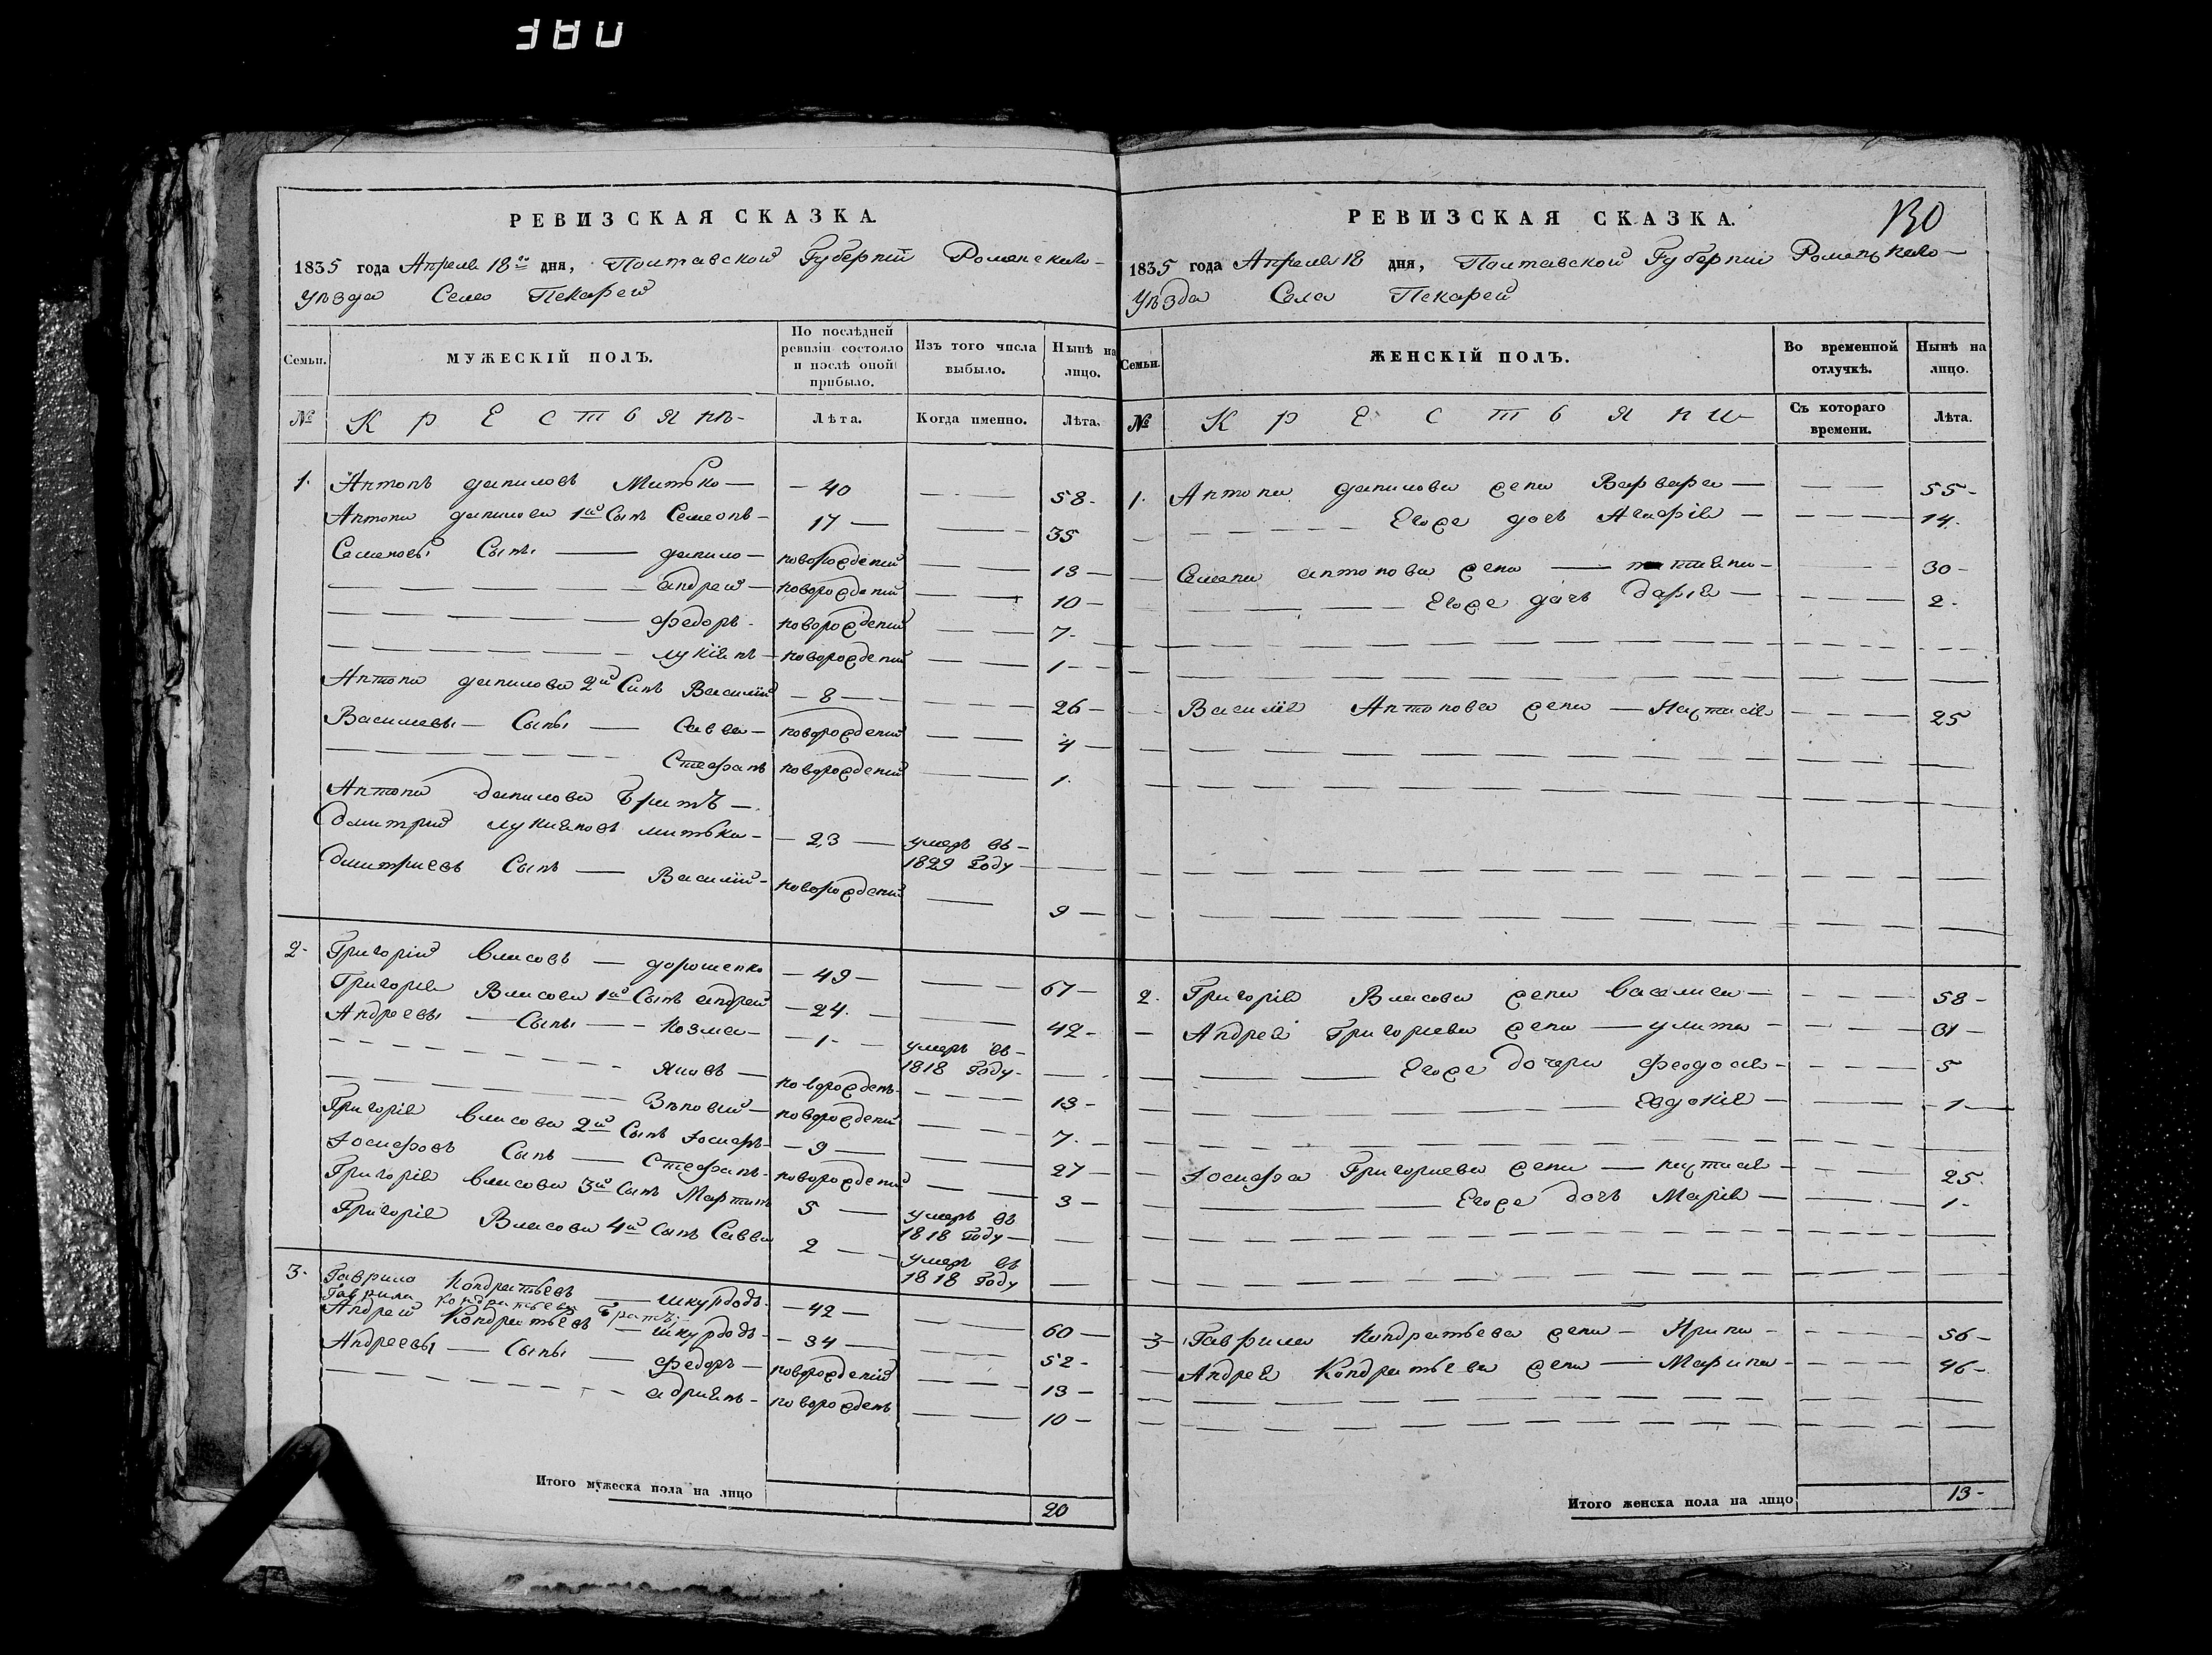 РЕВИЗСКАЯ СКАЗКА.
1835 года Апреля 18го дня, Полтавской Губерний Роменскаго
Уѣзда Село Пекарей
Семьи. МУЖЕСКІЙ ПОЛЪ. По послѣдней ревизіи состояло и послѣ оной прибыло. Изъ того числа выбыло. Нынѣ на лицо.
№ Крестьянѣ Лѣта. Когда именно. Лѣта.
1. Антонъ даниловъ Митько — 40 — 58
Антона данилова 1й Сынъ Семенъ 17 — 35
Семеновы Сыны — данило новорождений — 13
андрей новорождений — 10
федоръ новорождений — 7
лукіянъ новорождений — 1
Антона данилова 2й Синъ Василий — 8 — 26
Василиевы Сыны — Савва новорождений — 4
Стефанъ новорождений — 1
Антона данилова братъ —
дмитрий лукияновъ митька — 23 — умеръ въ 1829 Году —
дмитриевъ Сынъ — Василий новорождений — 9
2. Григорий власовъ — дорошенко — 49 — 67
Григорія Власова 1й Сынъ андрей — 24 — 42
Андреевы Сыны — Козма — 1 — умеръ въ 1818 Году —
Яковъ — новорожденъ — 13
Зѣновий — новорождений — 7
Григорія власова 2й Сынъ Iосифъ — 9 — 27
Iосифовъ Сынъ — Стефанъ новорождений — 3
Григорія власова 3й Сынъ Мартинъ 5 — умеръ въ 1818 Году —
Григорія Власова 4й Сынъ Савва 2 — умеръ въ 1818 Году —
3. Гаврило Кондратьевъ — шкурдодъ — 42 — 60
Гаврила Кондратьева братъ
Андрей Кондратьевъ — шкурдодъ — 34 — 52
Андреевы — Сыны — федоръ — новорожденій — 13
адриянъ — новорожденъ — 10
Итого мужеска пола на лицо 20
130
РЕВИЗСКАЯ СКАЗКА.
1835 года Апреля 18 дня, Полтавской Губерний Роменскаго
Уѣзда Села Пекарей
Семьи. ЖЕНСКІЙ ПОЛЪ. Во временной отлучкѣ. Нынѣ на лицо.
№ Крестьяни Съ котораго времени. Лѣта.
1. Антона данилова жена Варвара — 55
Егоже дочъ Агафія — 14
Семена антонова жена — татияна — 30
Егоже дочъ дарія — 2
Василія Антонова жена — Настасія — 25
2. Григорія Власова жена васелиса — 58
Андрея Григориева жена — улита — 31
Егоже дочери феодосія — 5
Евдокія — 1
Iосифа Григориева жена — настасія — 25
Егоже дочъ Марія — 1
3 Гаврила Кондратьева жена — Ярина — 56
Андрея Кондратьева жена — Марина — 46
Итого женска пола на лицо 13